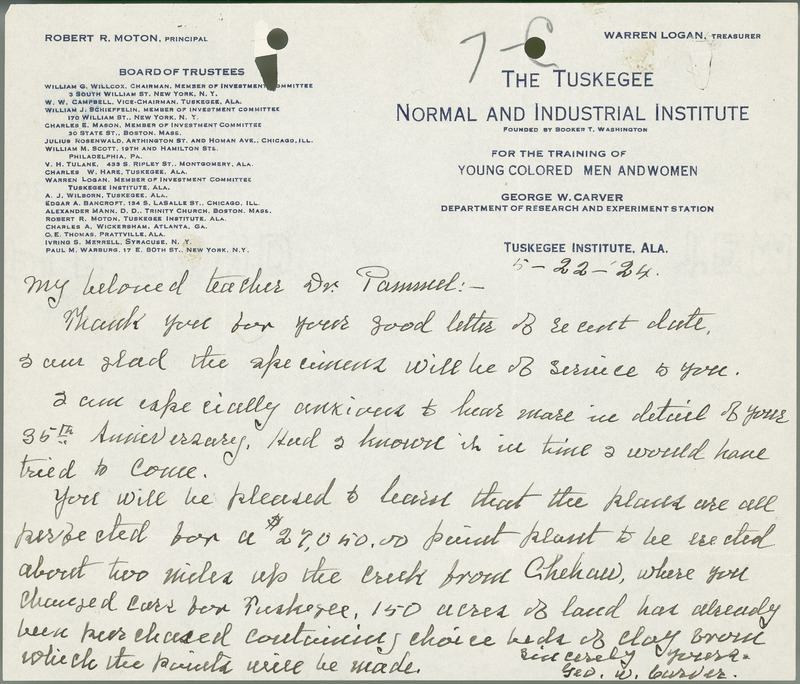 ROBERT R. MOTON, PRINCIPAL
WARREN LOGAN, TREASURER
BOARD OF TRUSTEES
WILLIAM G. WILLCOX, CHAIRMAN, MEMBER OF INVESTMENT COMMITTEE
3 SOUTH WILLIAM ST. NEW YORK, N. Y.
W. W. CAMPBELL, VICE-CHAIRMAN, TUSKEGEE, ALA.
WILLIAM J. SCHIEFFELIN, MEMBER OF INVESTMENT COMMITTEE
170 WILLIAM ST., NEW YORK, N. Y.
CHARLES E. MASON, MEMBER OF INVESTMENT COMMITTEE
30 STATE ST., BOSTON, MASS.
JULIUS ROSENWALD, ARTHINGTON ST. AND HOMAN AVE., CHICAGO, ILL.
WILLIAM M. SCOTT, 19TH AND HAMILTON STS.
PHILADELPHIA, PA.
V. H. TULANE, 435 S. RIPLEY ST., MONTGOMERY, ALA.
CHARLES W. HARE, TUSKEGEE, ALA.
WARREN LOGAN, MEMBER OF INVESTMENT COMMITTEE
TUSKEGEE INSTITUTE, ALA.
A. J. WILBORN, TUSKEGEE, ALA.
EDGAR A. BANCROFT, 134 S. LASALLE ST., CHICAGO, ILL.
ALEXANDER MANN, D. D., TRINITY CHURCH, BOSTON, MASS.
ROBERT R. MOTON, TUSKEGEE INSTITUTE, ALA.
CHARLES A. WICKERSHAM, ATLANTA, GA.
C. E. THOMAS, PRATTVILLE, ALA.
IVRING S. MERRELL, SYRACUSE, N. Y.
PAUL M. WARBURG, 17 E. 80TH ST., NEW YORK, N.Y.
THE TUSKEGEE
NORMAL AND INDUSTRIAL INSTITUTE
FOUNDED BY BOOKER T. WASHINGTON
FOR THE TRAINING OF
YOUNG COLORED MEN AND WOMEN
GEORGE W. CARVER
DEPARTMENT OF RESEARCH AND EXPERIMENT STATION
TUSKEGEE INSTITUTE, ALA.
5-22-'24.
My beloved teacher Dr. Pammel:-
Thank you for your good letter of recent date,
I am glad the specimens will be of service to you.
I am especially anxious to hear more in detail of your
35th Anniversary. Had I known it in time I would have
tried to come.
You will be pleased to learn that the plans are all
perfected for a $27,050.00 paint plant to be erected
about two miles up the creek from Chehaw, where you
changed cars for Tuskegee, 150 acres of land has already
been purchased containing choice beds of clay from
which the paints will be made.
Sincerely yours.
Geo. W. Carver.